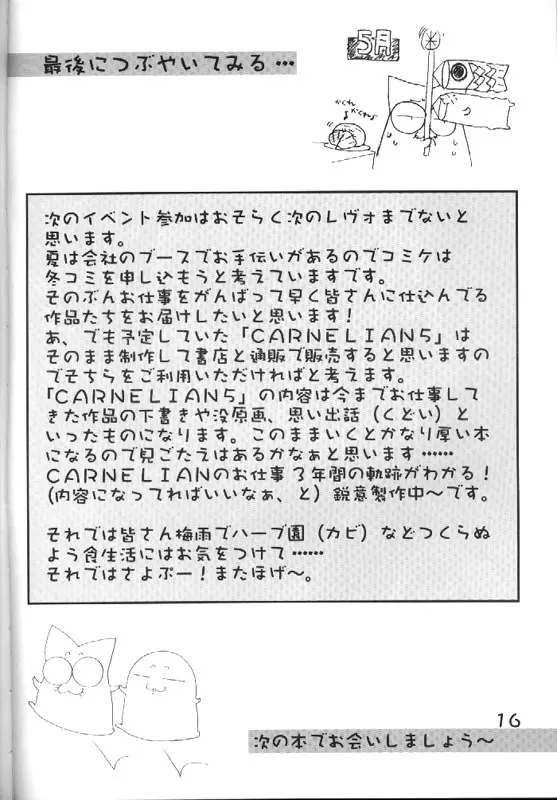 最後につぶやいてみる…
5月
かくれ
♪かくれ♪
次のイベント参加はおそらく次のレヴォまでないと
思います。
夏は会社のブースでお手伝いがあるのでコミケは
冬コミを申し込もうと考えていますです。
そのぶんお仕事をがんばって早く皆さんに仕込んでる
作品たちをお届けしたいと思います!
あ、でも予定していた「CARNELIAN5」は
そのまま制作して書店と通販で販売すると思いますの
でそちらをご利用いただければと考えます。
「CARNELIAN5」の内容は今までお仕事して
きた作品の下書きや没原画、思い出話(くどい)と
いったものになります。このままいくとかなり厚い本
になるので見ごたえはあるかなぁと思います……
CARNELIANのお仕事3年間の軌跡がわかる!
(内容になってればいいなぁ、と)鋭意製作中～です。
それでは皆さん梅雨でハーブ園(カビ)などつくらぬ
よう食生活にはお気をつけて……
それではさよぷー!またほげ～。
16
次の本でお会いしましょう～